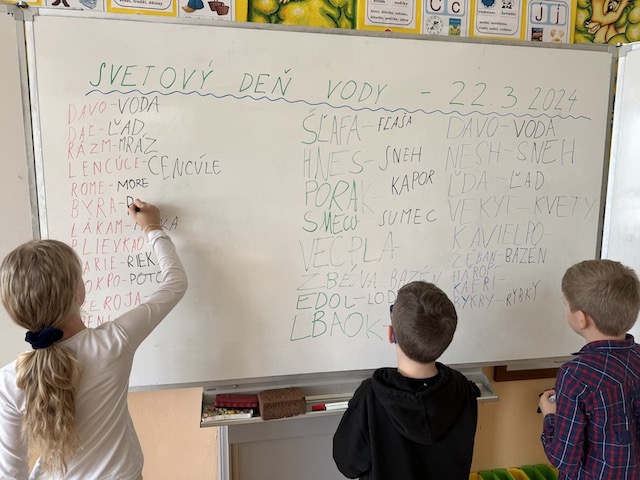 C C
J j
SVETOVÝ DEŇ VODY - 22.3.2024
DAVO-VODA
DAĽ-ĽAD
RÁZM-MRÁZ
LENCÚCE-CENCÚLE
ROME-MORE
BYRA-
LÁKAM-
PLIEYKAO
RIEK
POTO
ŠĽAFA-FĽAŠA
HNES-SNEH
PORAK-KAPOR
SMECU-SUMEC
VECPLA-
ZBÉVA BAZÉN
EDOL-LOD
LBAOK
DAVO-VODA
NESH-SNEH
ĽDA-ĽAD
VEKYI-KVETY
KAVIELPO-
ZÉBAN-BAZÉN
BYKRY-RYBKY